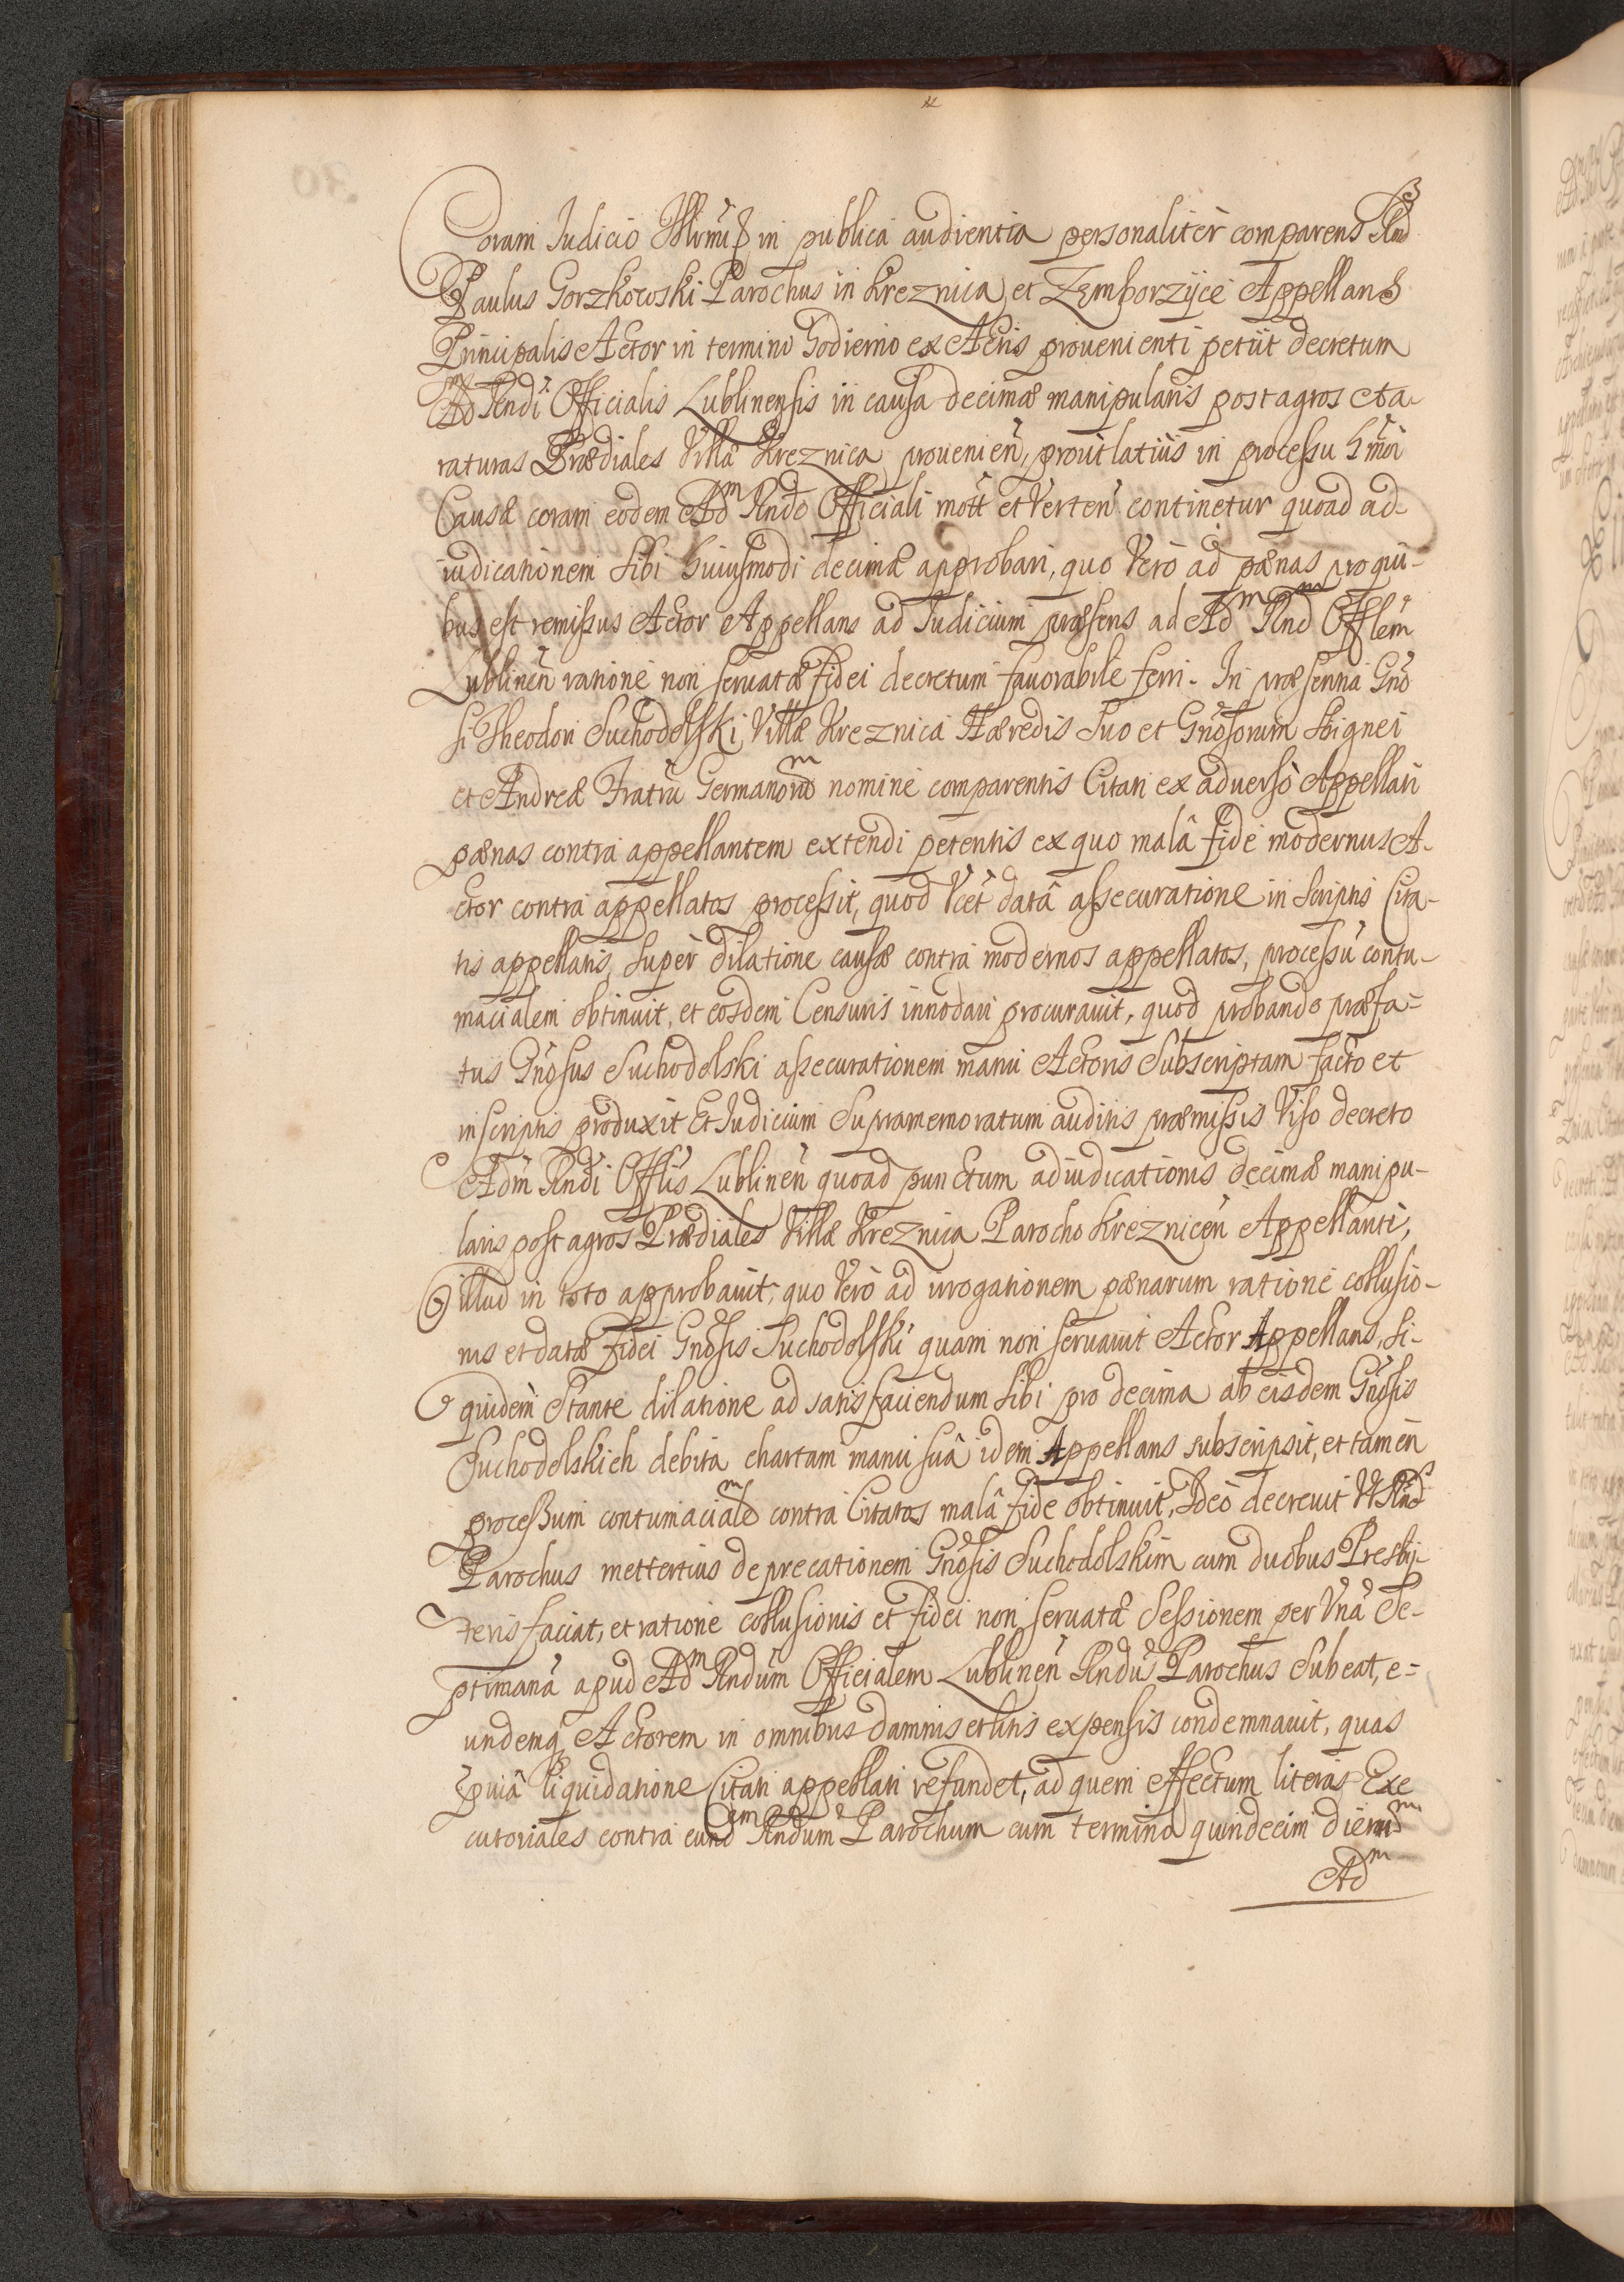 Coram Iudicio Illrmi in publica audientia personaliter comparens Rnd
Paulus Gorzkowski Parochus in Kreznica et Zęmborzyce Appellans
Principalis Actor in termino hodierno ex Actis prouenienti petiit decretum
Adm Rndi Officialis Lublinensis in causa decimæ manipularis post agros Ara-
raturas Prædiales Villæ Kreznica prouenien, prout latius in processu hmoi
Causæ coram eodem Adm Rndo Officiali mott et Verten continetur quoad ad-
iudicationem sibi huiusmodi decimæ approbari, quo Vero ad pænas pro qui-
bus est remissus Actor Appellans ad Iudicium præsens ad Adm Rndm Offlem
Lublinen ratione non seruatæ fidei decretum fauorabile ferri. In præsentia Gno
si Theodori Suchodolski, Villæ Kreznica Hæredis suo et Gnosorum
et Andreæ Fratru Germanorum nomine comparentis Citati ex aduerso Appellati
pænas contra appellantem extendi petentis ex quo malâ fide modernus A-
ctor contra appellatos processit, quod Vcet datâ assecuratione in scriptis Cita-
tis appellatis, super dilatione causæ contra modernos appellatos, processu contu-
macialem obtinuit, et eosdem Censuris innodari procurauit, quod probando præfa-
tus Gnosus Suchodolski assecurationem manu Actoris Subscriptam facto et
in scriptis produxit Et Iudicium Supramemoratum auditis præmissis Viso decreto
Adm Rndi Offlis Lublinen quoad punctum adiudicationis decimæ manipu-
laris post agros Prædiales Villæ Kreznica Parocho Kreznicen Appellanti,
illud in toto approbauit, quo Vero ad irrogationem pænarum ratione collusio-
nis et datæ fidei Gnosis Suchodolski quam non seruauit Actor Appellans, si-
quidem stante dilatione ad satisfaciendum sibi pro decima ab eisdem Gnosis
Suchodolskich debita chartam manu suâ idem Appellans subscripsit, et tamen
processum contumacialem contra Citatos malâ fide obtinuit, Ideo decreuit Vt Rnd
Parochus mettertius deprecationem Gnosis Suchodolskim cum duobus Presby-
teris faciat, et ratione collusionis et fidei non seruatæ Sessionem per Vnâ Se-
ptimanâ apud Adm Rndum Officialem Lublinen Rndus Parochus Subeat, e-
undemq Actorem in omnibus damnis et litis expensis condemnauit, quas
præuiâ liquidatione Citati appellati refundet, ad quem effectum literas Exe
cutoriales contra eundem Rndum Parochum cum termino quindecim dierum
Adm